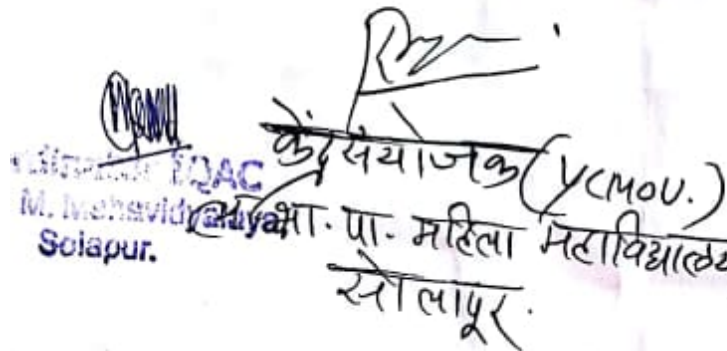 IQAC
M. Mahavidyalaya
Solapur.
केंद्र संयोजक (YCMOU.)
भा. पा. महिला महाविद्यालय
सोलापूर.